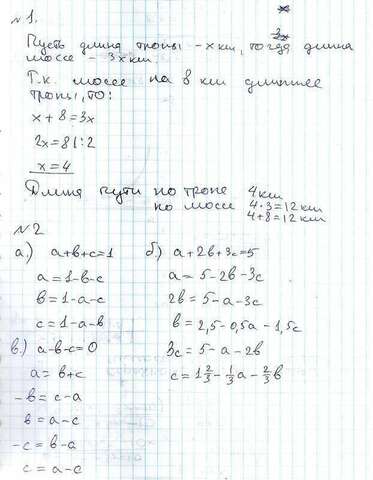 №1.
Пусть длина тропы - x км, тогда длина
шоссе - 3x км.
Т.к. шоссе на 8 км длиннее
тропы, то:
x + 8 = 3x
2x = 8 | : 2
x = 4
Длина пути по тропе 4 км
по шоссе 4·3=12 км
4+8=12 км
№2
а) a+b+c=1
a=1-b-c
b=1-a-c
c=1-a-b
б) a+2b+3c=5
a=5-2b-3c
2b=5-a-3c
b=2,5-0,5a-1,5c
3c=5-a-2b
c=1 2/3 - 1/3 a - 2/3 b
в) a-b-c=0
a=b+c
-b=c-a
b=a-c
-c=b-a
c=a-c